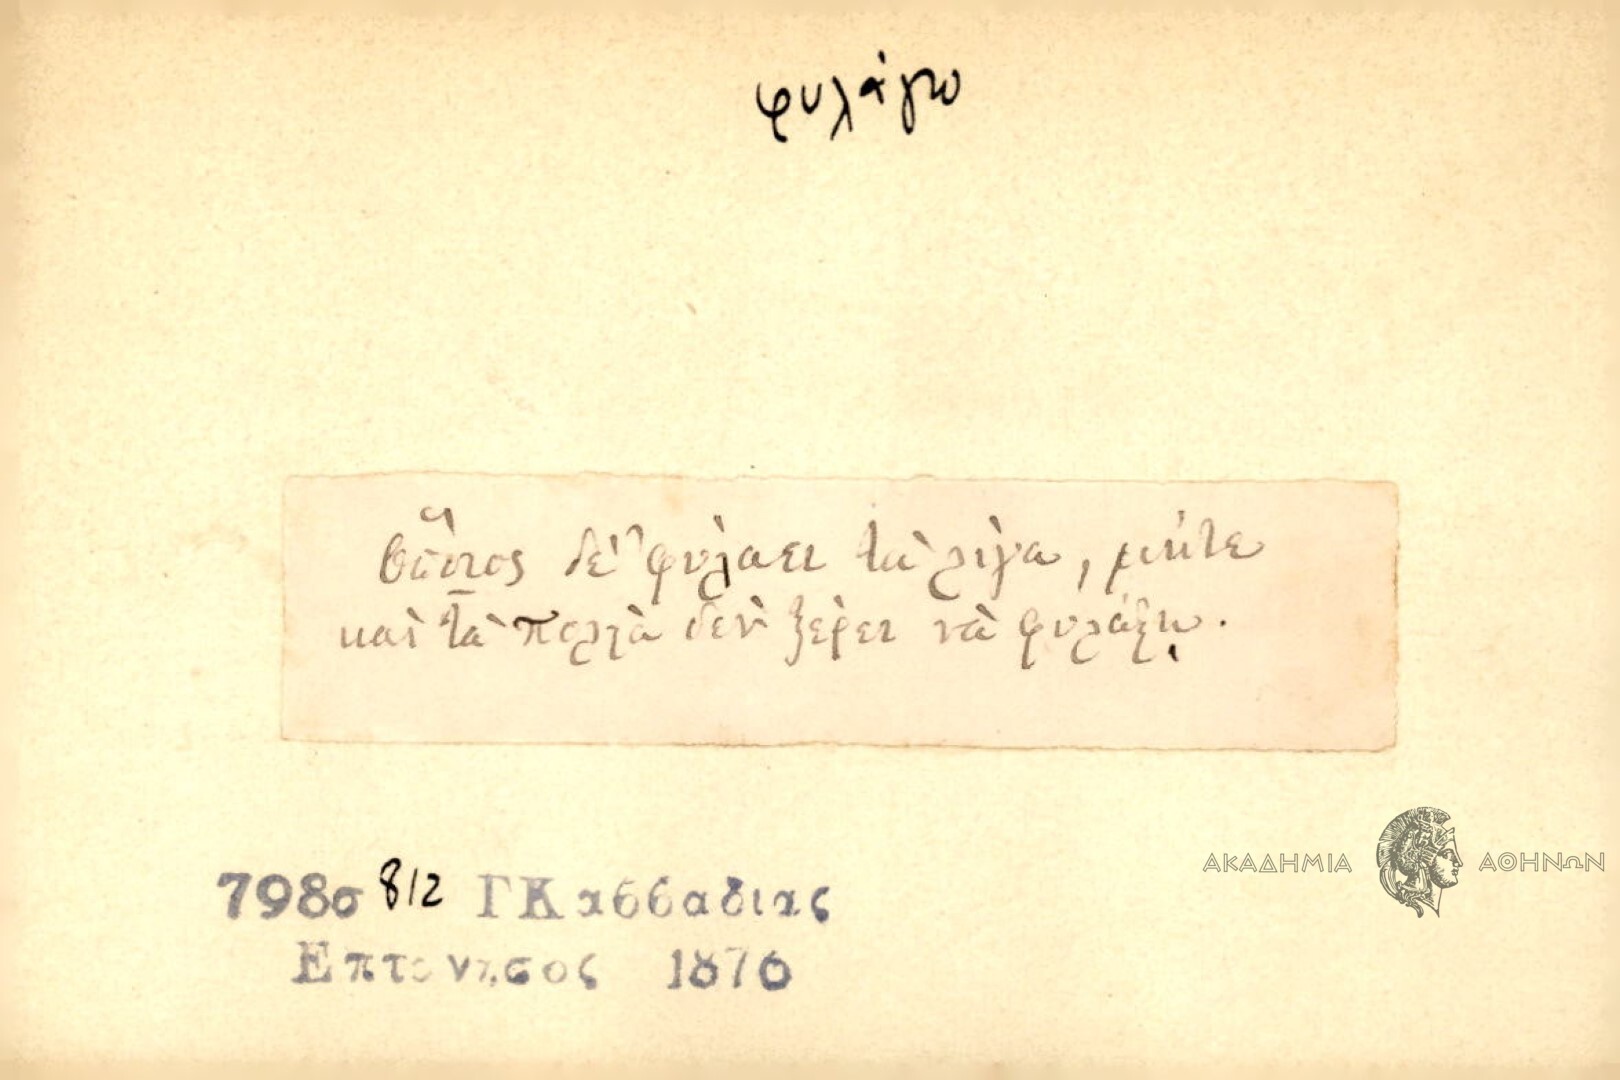 φυλάγω
Ὅποιος δὲ φυλάει τὰ λίγα, μήτε
καὶ τὰ πολλὰ δὲν ξέρει νὰ φυλάξῃ.
798σ 812 Γ Καββαδίας
Επτανησος 1876
ΑΚΑΔΗΜΙΑ ΑΘΗΝΩΝ